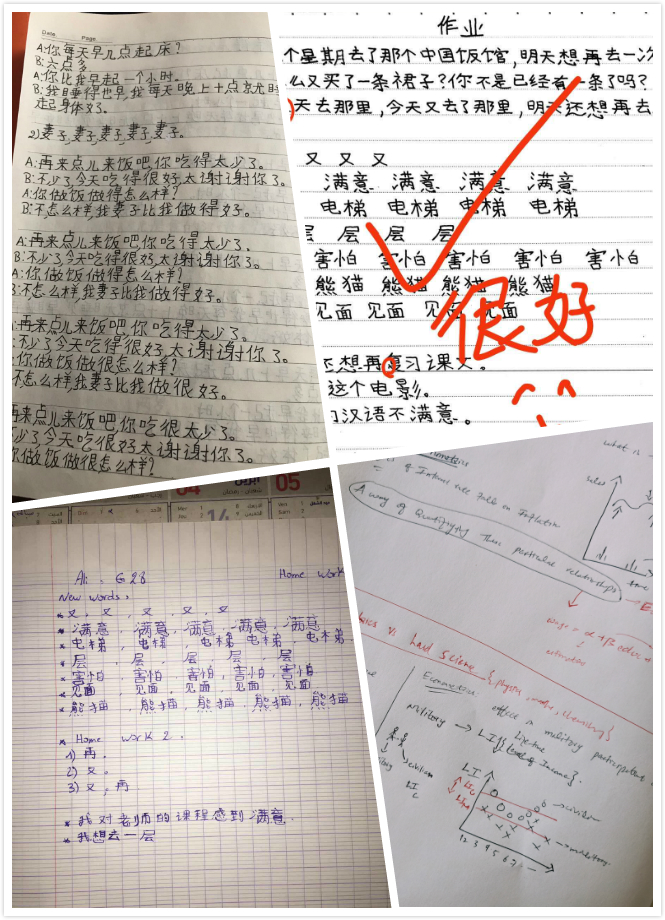 A:你每天早几点起床?
B:六点多。
A:你比我早起一个小时。
B:我睡得也早,我每天晚上十点就睡
起身体好。
2)妻子,妻子,妻子,妻子,妻子。
A:再来点儿来饭吧你吃得太少了。
B:不少了今天吃得很好太谢谢你了。
A:你做饭做得怎么样?
B:不怎么样,我妻子比我做得好。
A:再来点儿来饭吧你吃得太少了。
B:不少了今天吃得很好太谢谢你了。
A:你做饭做得怎么样?
B:不怎么样,我妻子比我做得好。
再来点儿来饭吧你吃得太少了。
不少了今天吃得很好太谢谢你了。
你做饭做很怎么样?
不怎么样我妻子比我做很好。
再来点儿来饭吧你吃很太少了。
少了今天吃很好太谢谢你了。
你做饭做很怎么样?
作业
个星期去了那个中国饭馆,明天想再去一次
么又买了一条裙子?你不是已经有一条了吗?
天去那里,今天又去了那里,明天还想再去
又 又 又
满意 满意 满意 满意
电梯 电梯 电梯 电梯
层 层 层 层
害怕 害怕 害怕 害怕 害怕
熊猫 熊猫 熊猫 熊猫
见面 见面 见面 见面
很好
还想再复习课文。
这个电影。
汉语不满意。
04 05
14
Ali . G28 Home work
New words:
* 又 , 又 , 又 , 又 , 又
* 满意 , 满意 , 满意 , 满意 , 满意
* 电梯 , 电梯 , 电梯 电梯 , 电梯
* 层 , 层 , 层 , 层 , 层
* 害怕 , 害怕 , 害怕 , 害怕 , 害怕
* 见面 , 见面 , 见面 , 见面 , 见面
* 熊猫 , 熊猫 , 熊猫 , 熊猫 , 熊猫
* Home work 2 .
1) 再 .
2) 又 .
3) 又 , 再
* 我对老师的课程感到满意 .
* 我想去一层
what is
Sales
A way of Quantifying These particular relationships
time
wage = α + β educ +
vs hard Science { physics, maths, chemistry }
Econometrics: effect in military participation
Lifetime
military → LI { level of Income }
civilian
LI
civilian
military
1 2 3 4 5 6 7